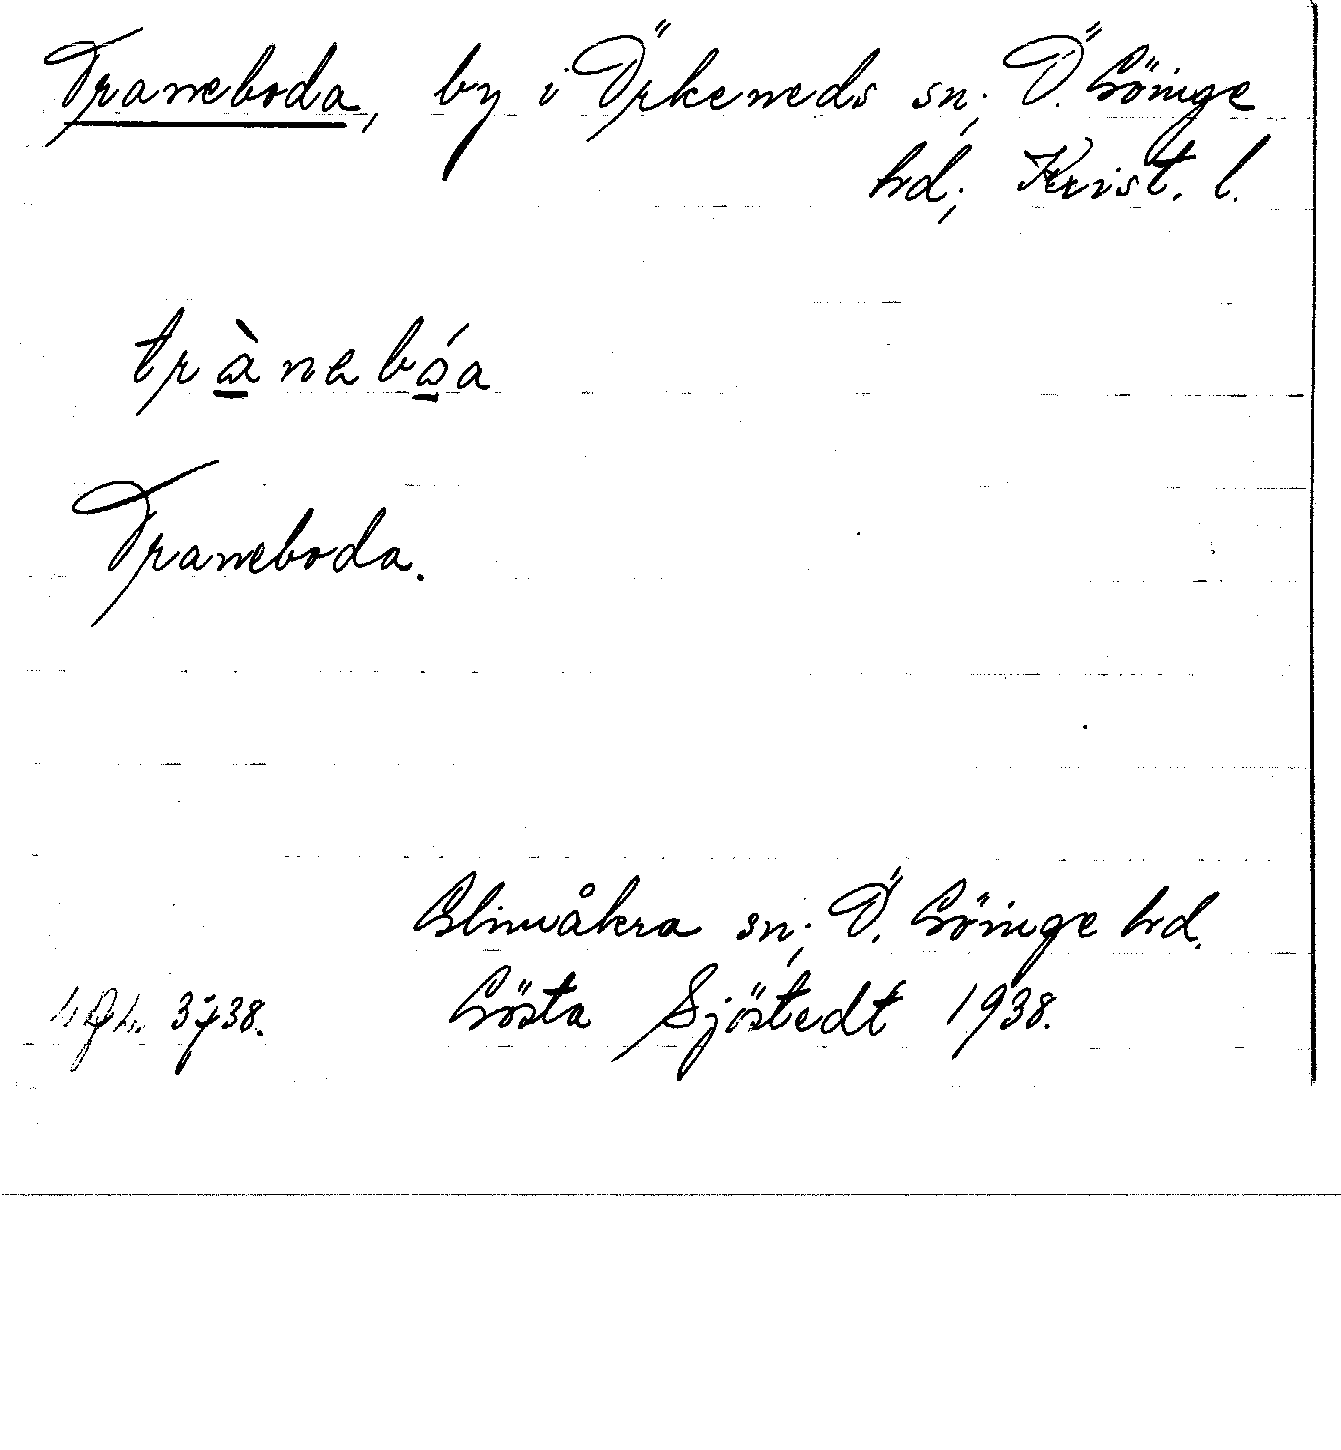 Traneboda, by i Örkeneds sn; Ö. Göinge
hd; Krist. l.
trànebóa
Traneboda.
Glimåkra sn; Ö. Göinge hd.
3738. Gösta Sjöstedt 1938.